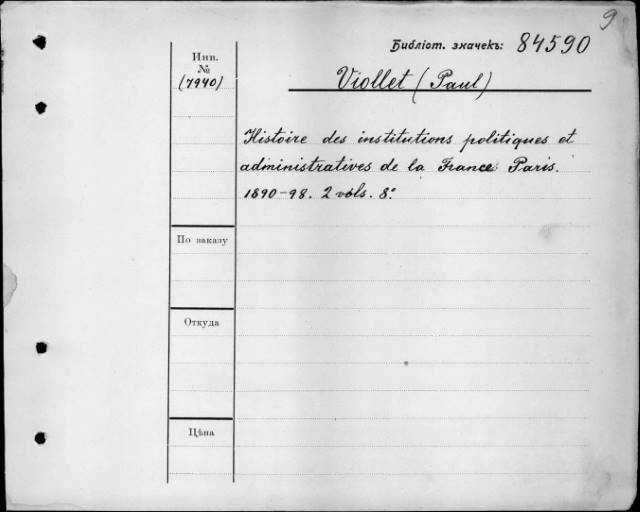 9
Библіот. значекъ: 84590
Инв.
№
(7940)
Viollet (Paul)
Histoire des institutions politiques et
administratives de la France. Paris.
1890-98. 2 vols. 8°
По заказу
Откуда
Цѣна